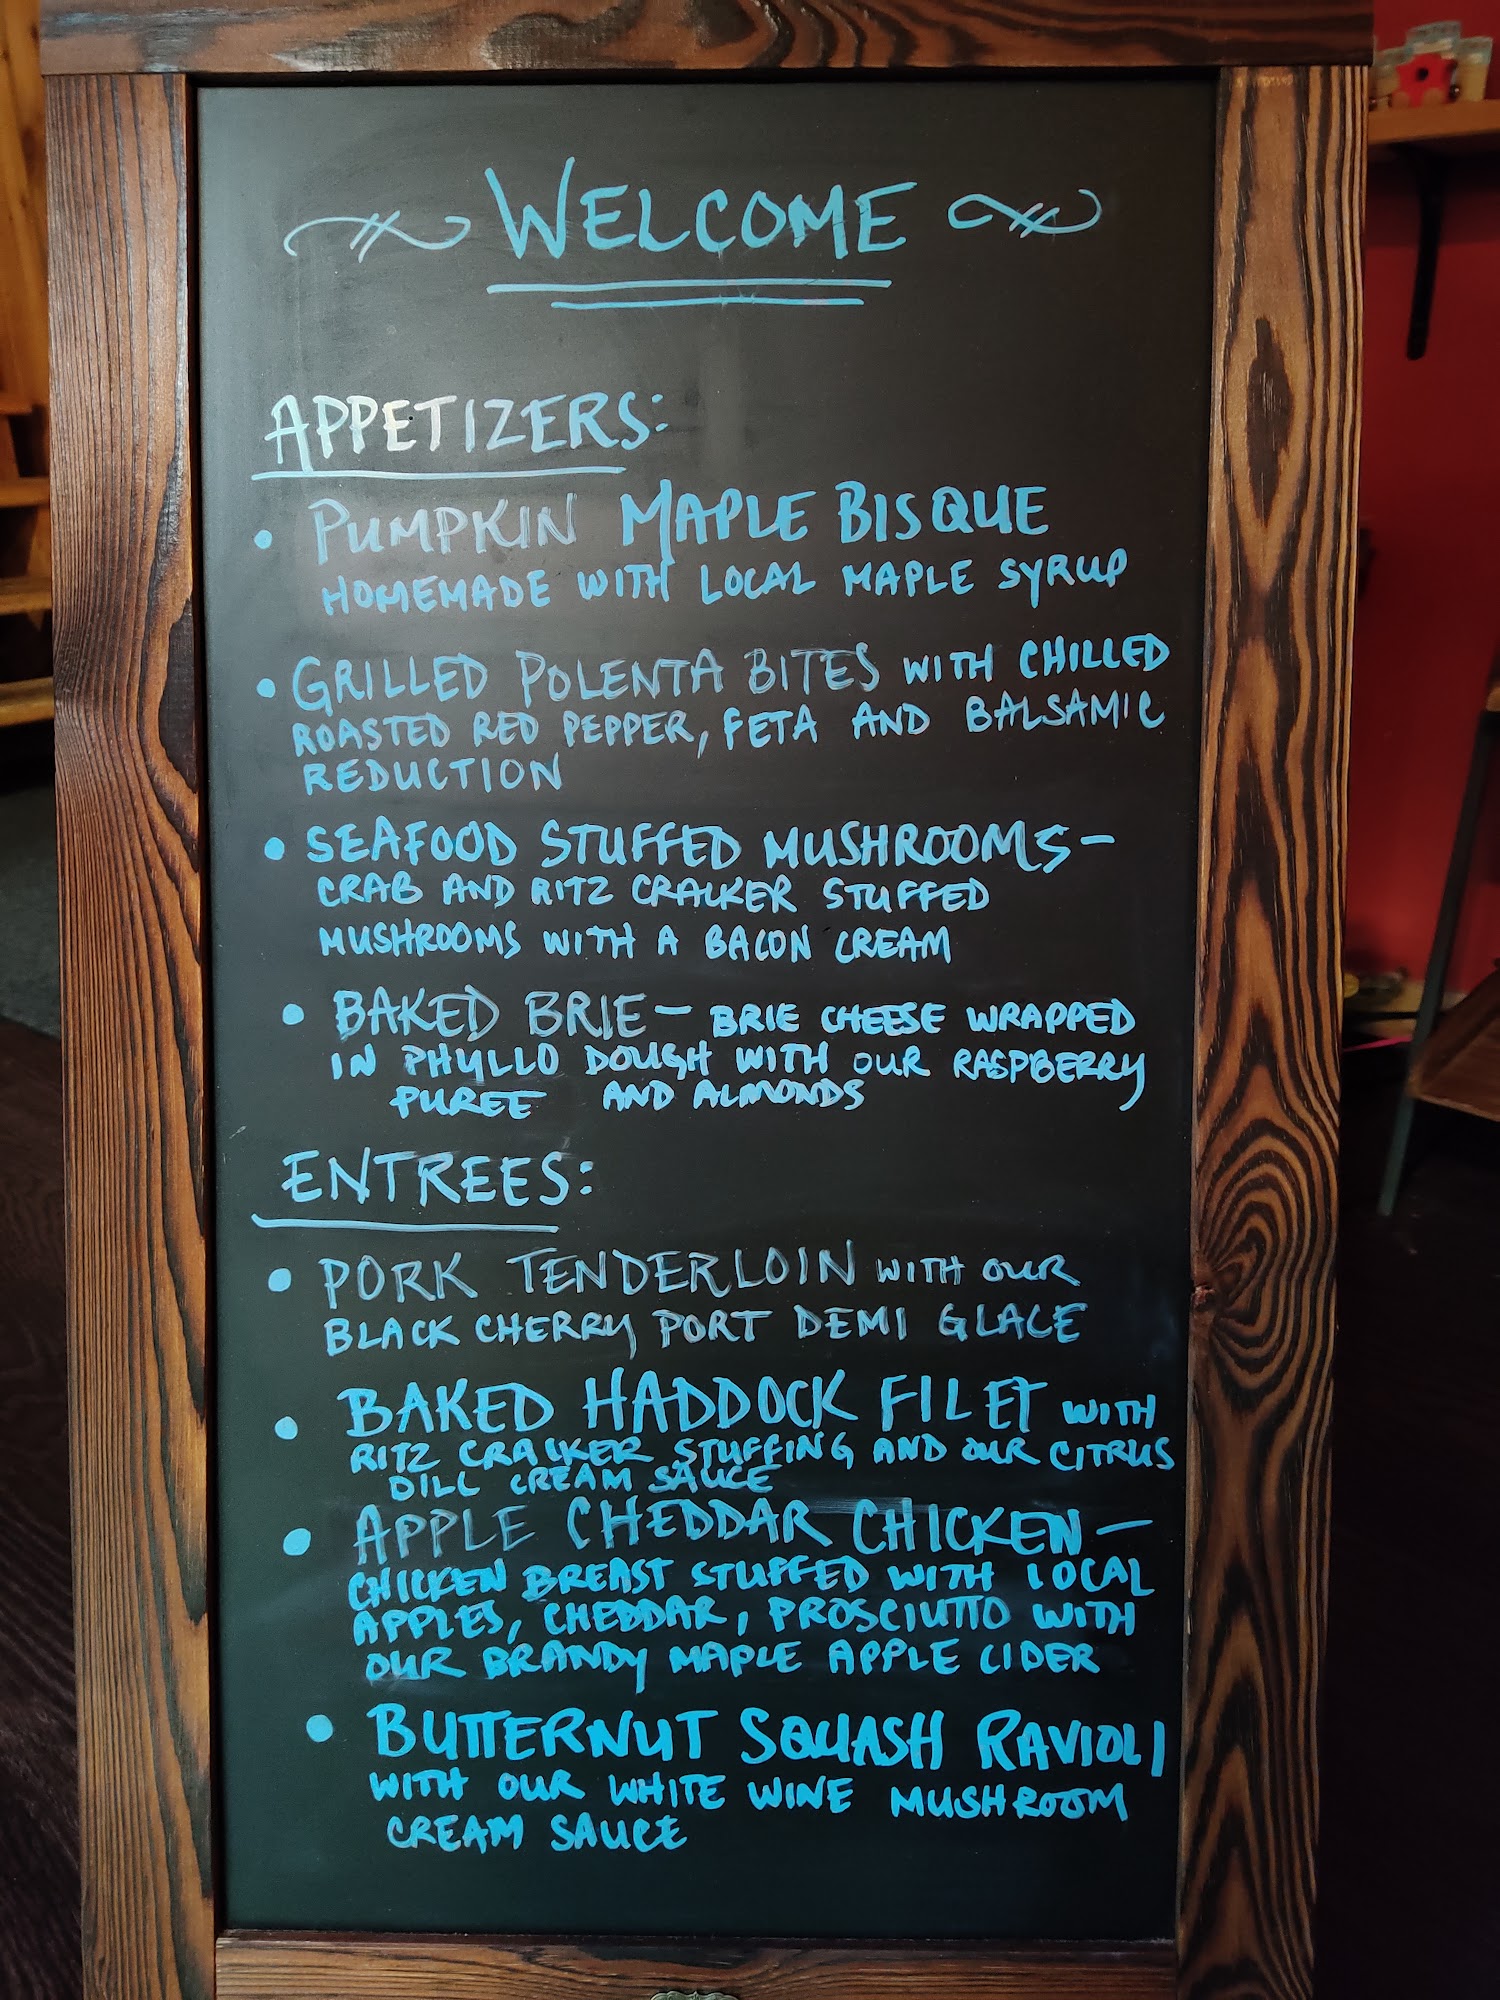 WELCOME
APPETIZERS:
• PUMPKIN MAPLE BISQUE
HOMEMADE WITH LOCAL MAPLE SYRUP
• GRILLED POLENTA BITES WITH CHILLED
ROASTED RED PEPPER, FETA AND BALSAMIC
REDUCTION
• SEAFOOD STUFFED MUSHROOMS-
CRAB AND RITZ CRACKER STUFFED
MUSHROOMS WITH A BACON CREAM
• BAKED BRIE- BRIE CHEESE WRAPPED
IN PHYLLO DOUGH WITH OUR RASPBERRY
PUREE AND ALMONDS
ENTREES:
• PORK TENDERLOIN WITH OUR
BLACK CHERRY PORT DEMI GLACE
• BAKED HADDOCK FILET WITH
RITZ CRACKER STUFFING AND OUR CITRUS
DILL CREAM SAUCE
• APPLE CHEDDAR CHICKEN-
CHICKEN BREAST STUFFED WITH LOCAL
APPLES, CHEDDAR, PROSCIUTTO WITH
OUR BRANDY MAPLE APPLE CIDER
• BUTTERNUT SQUASH RAVIOLI
WITH OUR WHITE WINE MUSHROOM
CREAM SAUCE